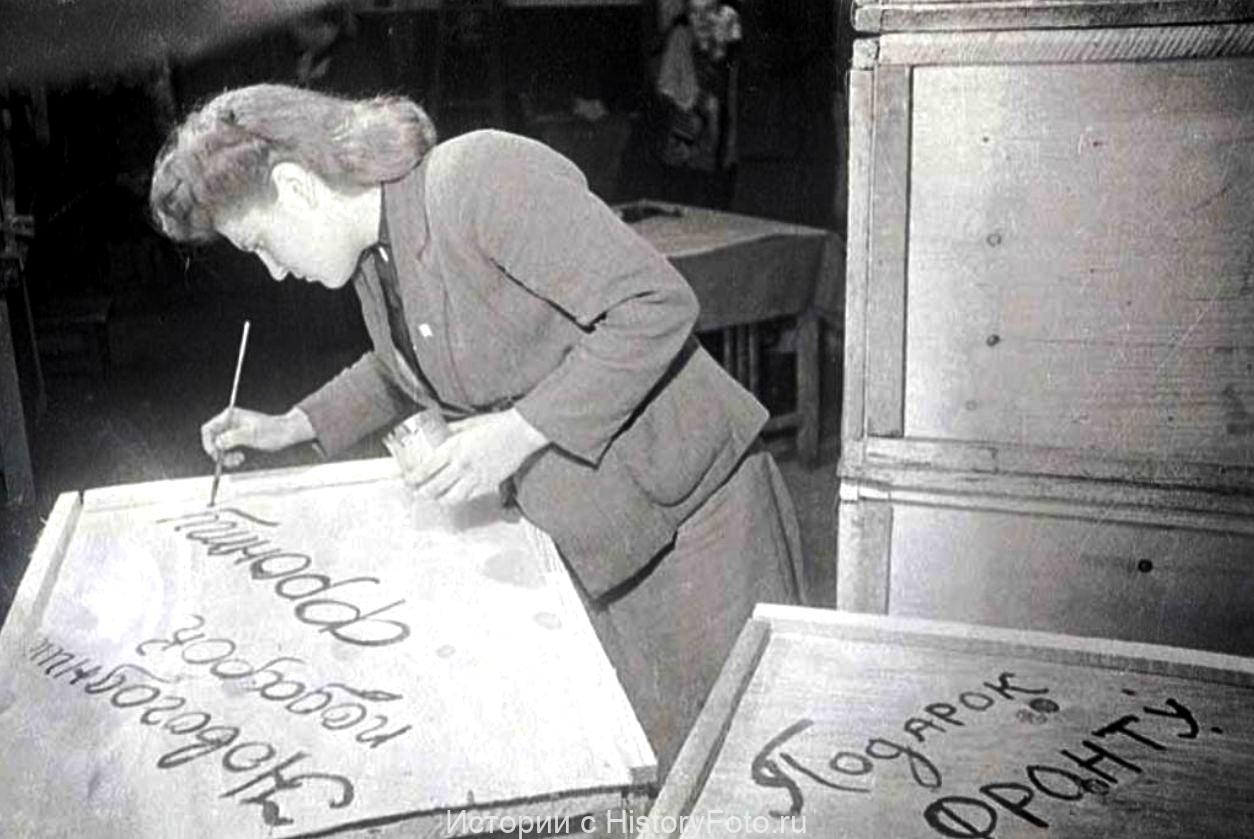 Новогодний
подарок
фронт
Подарок
фронту.
Истории с HistoryFoto.ru